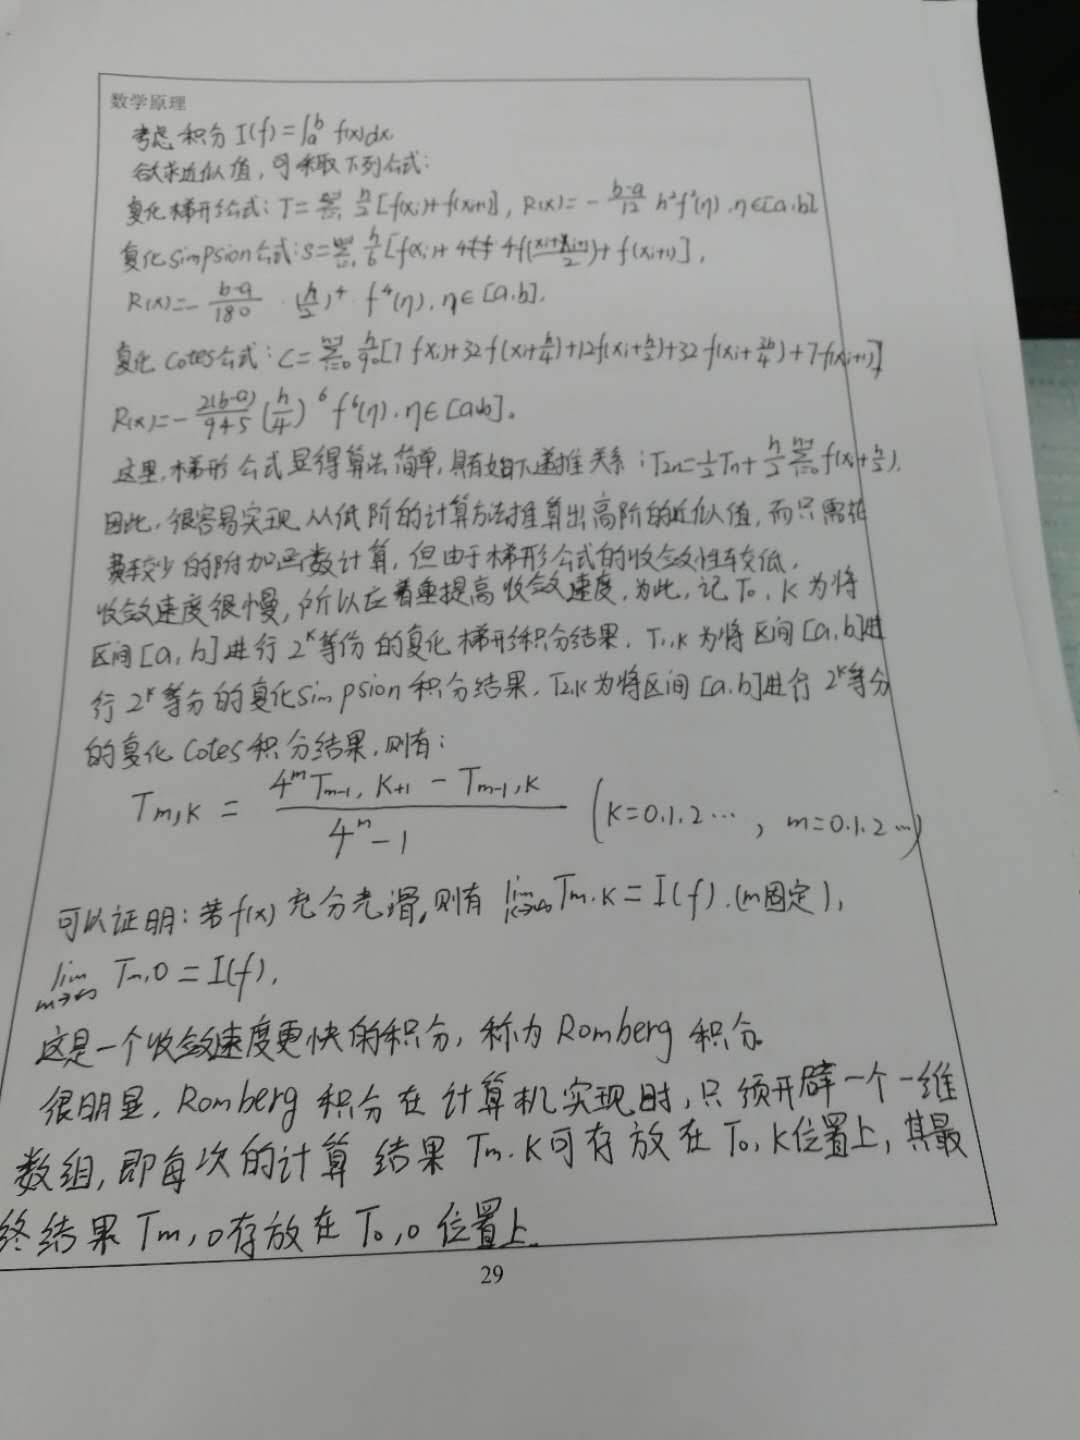 数学原理
考虑积分 I(f)=∫ₐᵇ f(x)dx
欲求近似值,可采取下列公式:
复化梯形公式: T=∑ h/2[f(xi)+f(xi+1)], R(x)=-(b-a)/12 h²f²(η).η∈[a.b]
复化simpsion公式:S=∑ h/6[f(xi)+4f((xi+xi+1)/2)+f(xi+1)],
R(x)=-(b-a)/180 ·(h/2)⁴·f⁴(η).η∈[a.b].
复化Cotes公式:C=∑ h/90[7f(xi)+32f(xi+h/4)+12f(xi+h/2)+32f(xi+3h/4)+7f(xi+1)]
R(x)=-2(b-a)/945(h/4)⁶f⁶(η).η∈[a.b]。
这里,梯形公式显得算法简单,具有如下递推关系:T2n=1/2Tn+h/2∑f(xi+h/2).
因此,很容易实现从低阶的计算方法推算出高阶的近似值,而只需花
费较少的附加函数计算,但由于梯形公式的收敛性较低,
收敛速度很慢,所以应着重提高收敛速度,为此,记T₀,K为将
区间[a,b]进行2ᴷ等份的复化梯形积分结果,T₁,K为将区间[a,b]进
行2ᴷ等分的复化simpsion积分结果,T₂,K为将区间[a.b]进行2ᴷ等分
的复化Cotes积分结果,则有:
Tm,K = (4ᵐTm-1,K+1 - Tm-1,K)/(4ᵐ-1) (K=0.1.2…, m=0.1.2…)
可以证明:若f(x)充分光滑,则有 lim K→∞ Tm.K=I(f).(m固定),
lim m→∞ Tm,0=I(f),
这是一个收敛速度更快的积分,称为Romberg积分。
很明显,Romberg积分在计算机实现时,只须开辟一个一维
数组,即每次的计算结果Tm.K可存放在T₀,K位置上,其最
终结果Tm,0存放在T₀,0位置上.
29